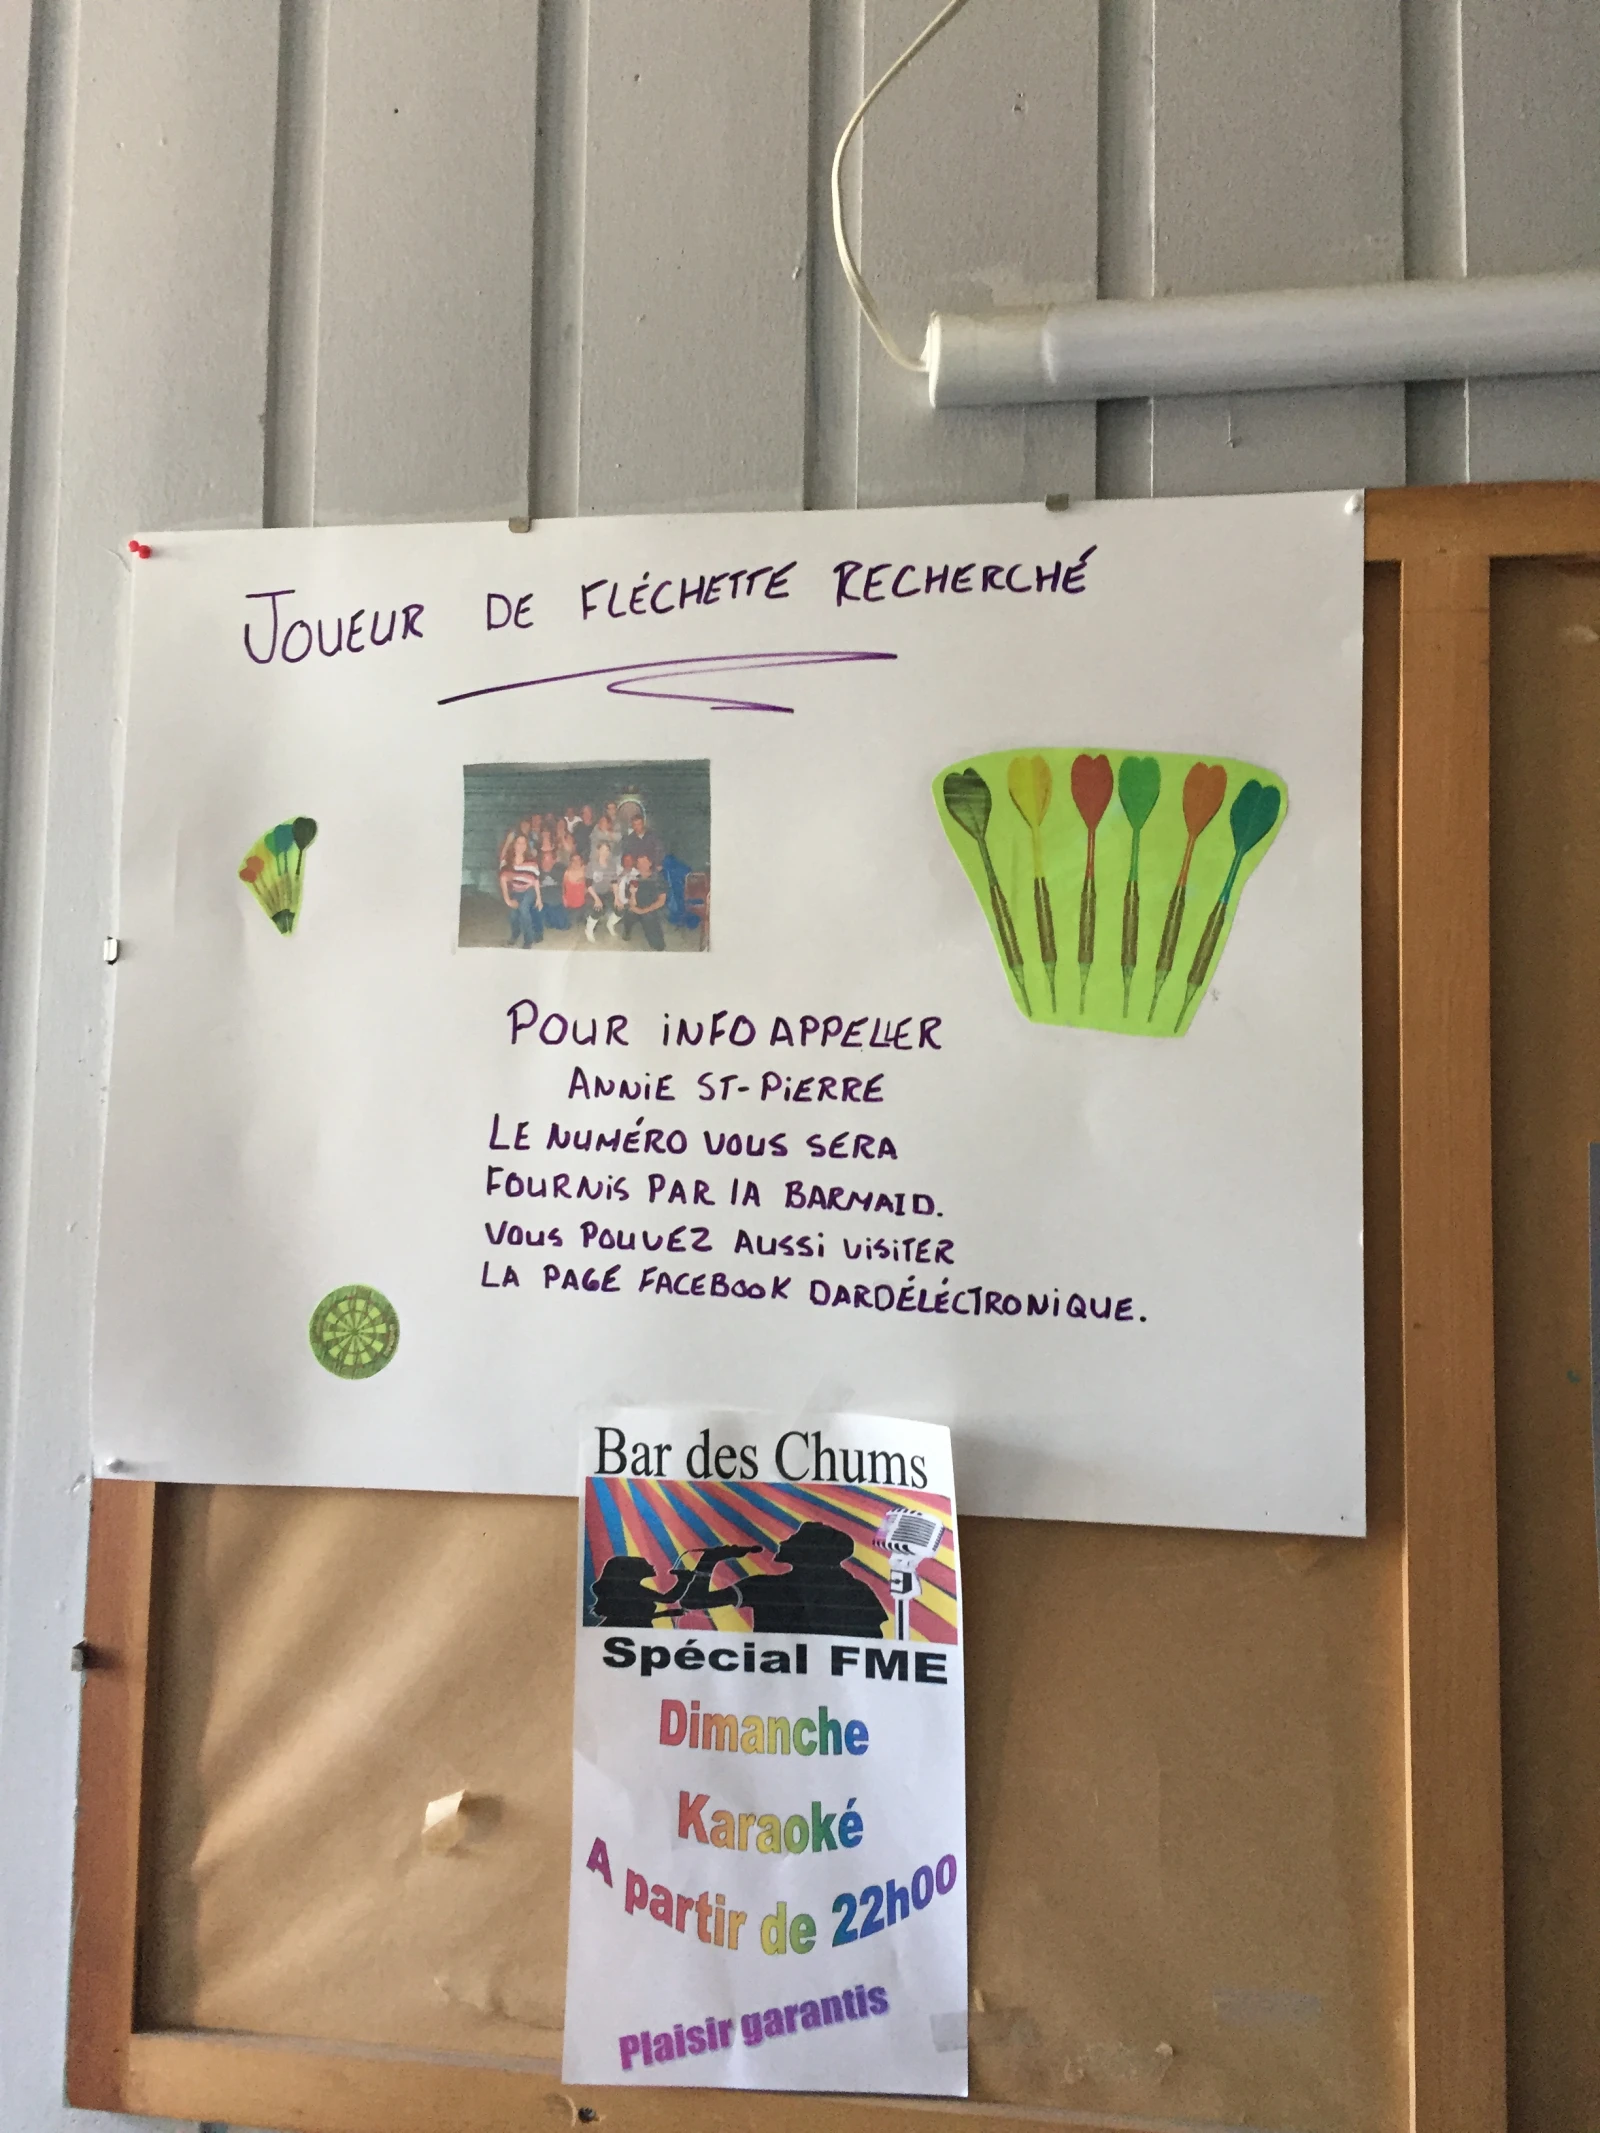 JOUEUR DE FLÉCHETTE RECHERCHÉ
POUR INFO APPELLER
ANNIE ST-PIERRE
LE NUMÉRO VOUS SERA
FOURNIS PAR LA BARMAID.
VOUS POUVEZ AUSSI VISITER
LA PAGE FACEBOOK DARDÉLÉCTRONIQUE.
Bar des Chums
Spécial FME
Dimanche
Karaoké
A partir de 22h00
Plaisir garantis